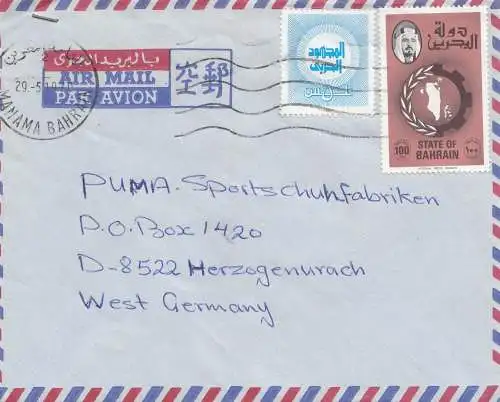 بالبريد الجوي
AIR MAIL
PAR AVION
空郵
MANAMA BAHRAIN
المجهود
الحربي
دولة
البحرين
100
١٠٠
STATE OF
BAHRAIN
PUMA-Sportschuhfabriken
P.O.Box 1420
D-8522 Herzogenurach
West Germany